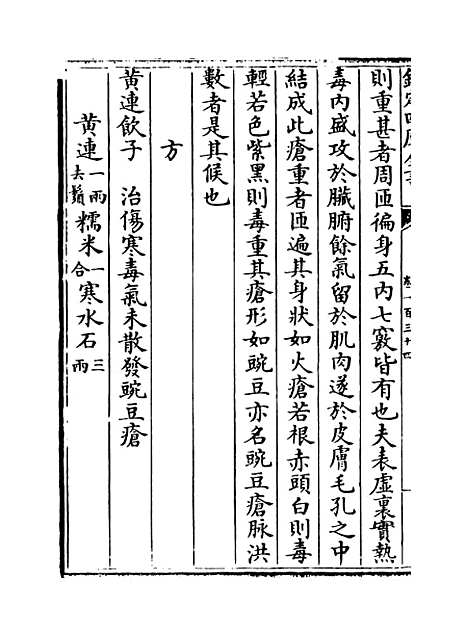 欽定四庫全書
卷一百三十四
則重甚者周匝徧身五内七竅皆有也夫表虚裏實熱
毒内盛攻於臟腑餘氣留於肌肉遂於皮膚毛孔之中
結成此瘡重者匝遍其身狀如火瘡若根赤頭白則毒
輕若色紫黑則毒重其瘡形如豌豆亦名豌豆瘡脉洪
數者是其候也
方
黄連飲子　治傷寒毒氣未散發豌豆瘡
黄連一兩去鬚糯米一合寒水石三兩